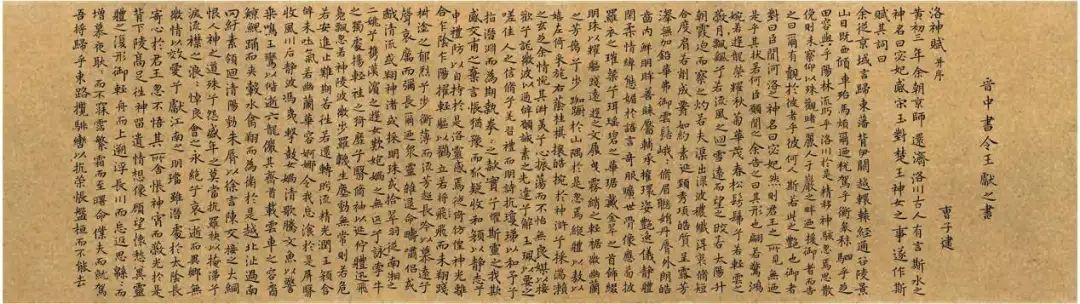 晉中書令王獻之書
曹子建
洛神賦 并序
黃初三年余朝京師還濟洛川古人有言斯水之
神名曰宓妃感宋玉對楚王神女之事遂作斯
賦其詞曰
余從京域言歸東藩背伊闕越轘轅經通谷陵景
山日既西傾車殆馬煩爾迺稅駕乎蘅皋秣駟乎芝
田容與乎陽林流眄乎洛川於是精移神駭忽焉思散
俯則未察仰以殊觀睹一麗人于巖之畔迺援御者而告
之曰爾有覿於彼者乎彼何人斯若此之豔也御者
對曰臣聞河洛之神名曰宓妃然則君王之所見無
迺是乎其狀若何臣願聞之余告之曰其形也翩若驚鴻
婉若遊龍榮耀秋菊華茂春松髣髴兮若輕雲之
蔽月飄颻兮若流風之迴雪遠而望之皎若太陽升
朝霞迫而察之灼若夫渠出淥波襛纖得衷脩短
合度肩若削成腰如約素延頸秀項皓質呈露芳
澤無加鉛華弗御雲髻峩峩脩眉聯娟丹脣外朗皓
齒內鮮明眸善睞靨輔承權瓌姿豔逸儀靜體
閑柔情綽態媚於語言奇服曠世骨像應圖披
羅衣之璀粲兮珥瑤碧之華琚戴金翠之首飾綴
明珠以耀軀踐遠遊之文履曳霧綃之輕裾微幽蘭
之芳藹兮步踟躕於山隅於是忽焉縱體以敖以
嬉左倚采旄右蔭桂旗攘皓腕於神滸兮採湍瀨
之玄芝余情悅其淑美兮心振蕩而不怡無良媒以接
懽兮託微波以通辭願誠素之先達兮解玉珮以要之
嗟佳人之信脩兮羌習禮而明詩抗瓊珶以和予兮
指潛淵而為期執拳拳之款實兮懼斯靈之我欺
感交甫之棄言悵猶豫而狐疑收和顏以靜志兮
申禮防以自持於是洛靈感焉徙倚彷徨神光離
合乍陰乍陽擢輕軀以鶴立若將飛而未翔踐
椒塗之郁烈兮步蘅薄而流芳超長吟以慕遠兮
聲哀厲而彌長爾迺眾靈雜遝命儔嘯侶或
戲清流或翔神渚或採明珠或拾翠羽從南湘之
二姚兮攜漢濱之遊女歎匏媧之無匹兮詠牽牛
之獨處揚輕袿之猗靡兮翳脩袖以延佇體迅飛
鳧飄忽若神陵波微步羅韈生塵動無常則若危
若安進止難期若往若還轉眄流精光潤玉顏含
辭未吐氣若幽蘭華容婀娜令我忘飡於是屏翳
收風川后靜波馮夷擊鼓女媧清歌騰文魚以警
乘鳴玉鸞以偕逝六龍儼其齊首載雲車之容裔
鯨鯢踊而夾轂水禽翔而為衛於是越北沚過南
岡紆素領迴清陽動朱脣以徐言陳交接之大綱
恨人神之道殊兮怨盛年之莫當抗羅袂以掩涕兮
淚流襟之浪浪悼良會之永絕兮哀一逝而異鄉無
微情以效愛兮獻江南之明璫雖潛處於太陰長
寄心於君王忽不悟其所舍悵神宵而蔽光於是
背下陵高足往神留遺情想像顧望懷愁冀靈
體之復形御輕舟而上遡浮長川而忘返思緜緜而
增慕夜耿耿而不寐霑繁霜而至曙命僕夫而就駕
吾將歸乎東路攬騑轡以抗策悵盤桓而不能去